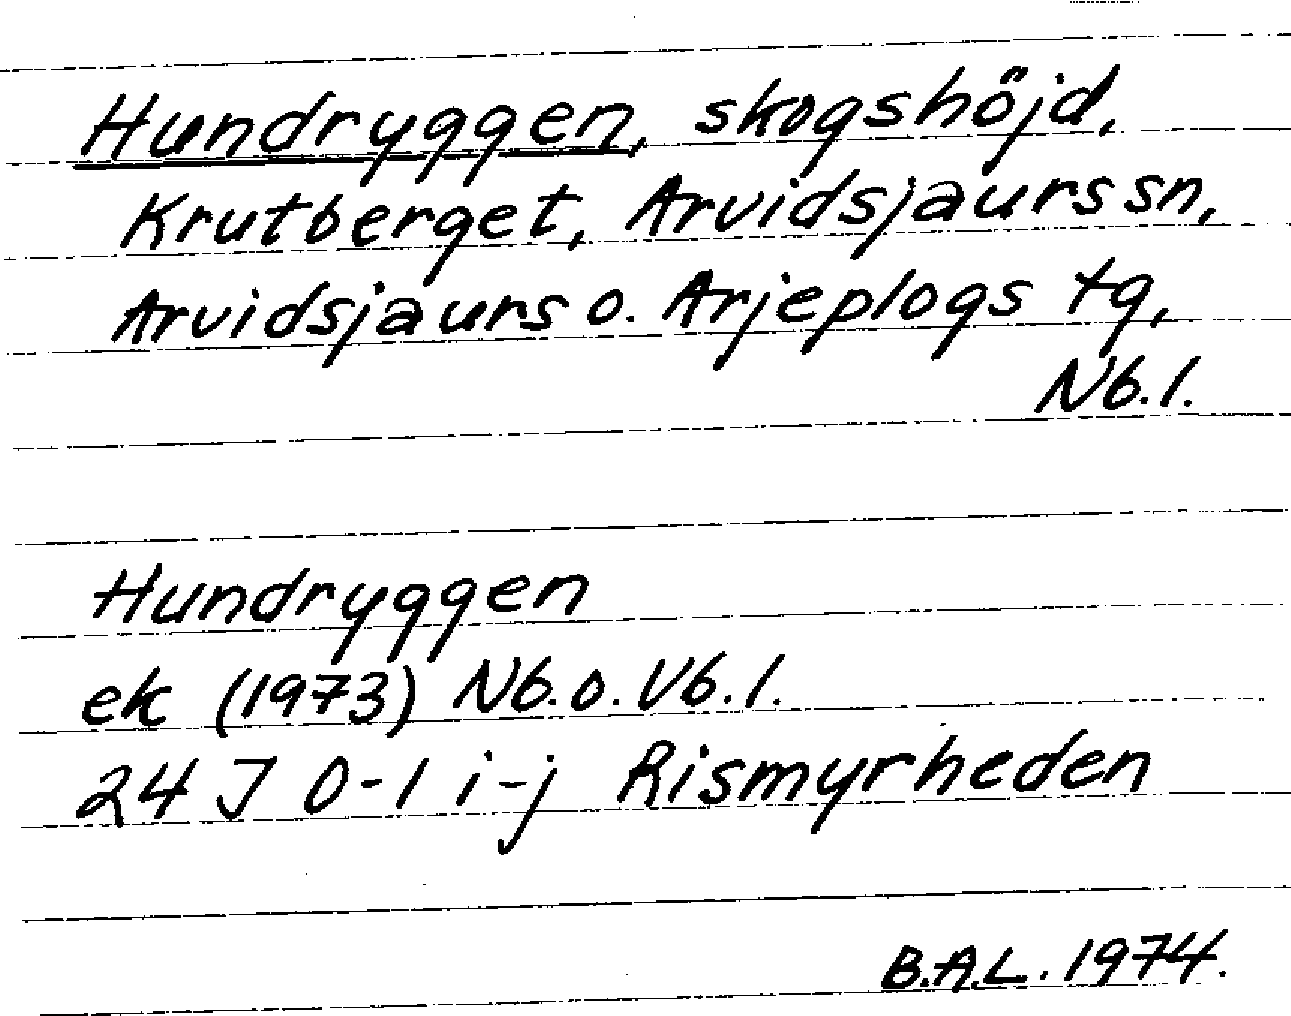 Hundryggen, skogshöjd,
Krutberget, Arvidsjaurs sn,
Arvidsjaurs o. Arjeplogs tg,
Nb.l.
Hundryggen
ek (1973) Nb.o.Vb.l.
24 J 0-1 i-j Rismyrheden
B.A.L. 1974.